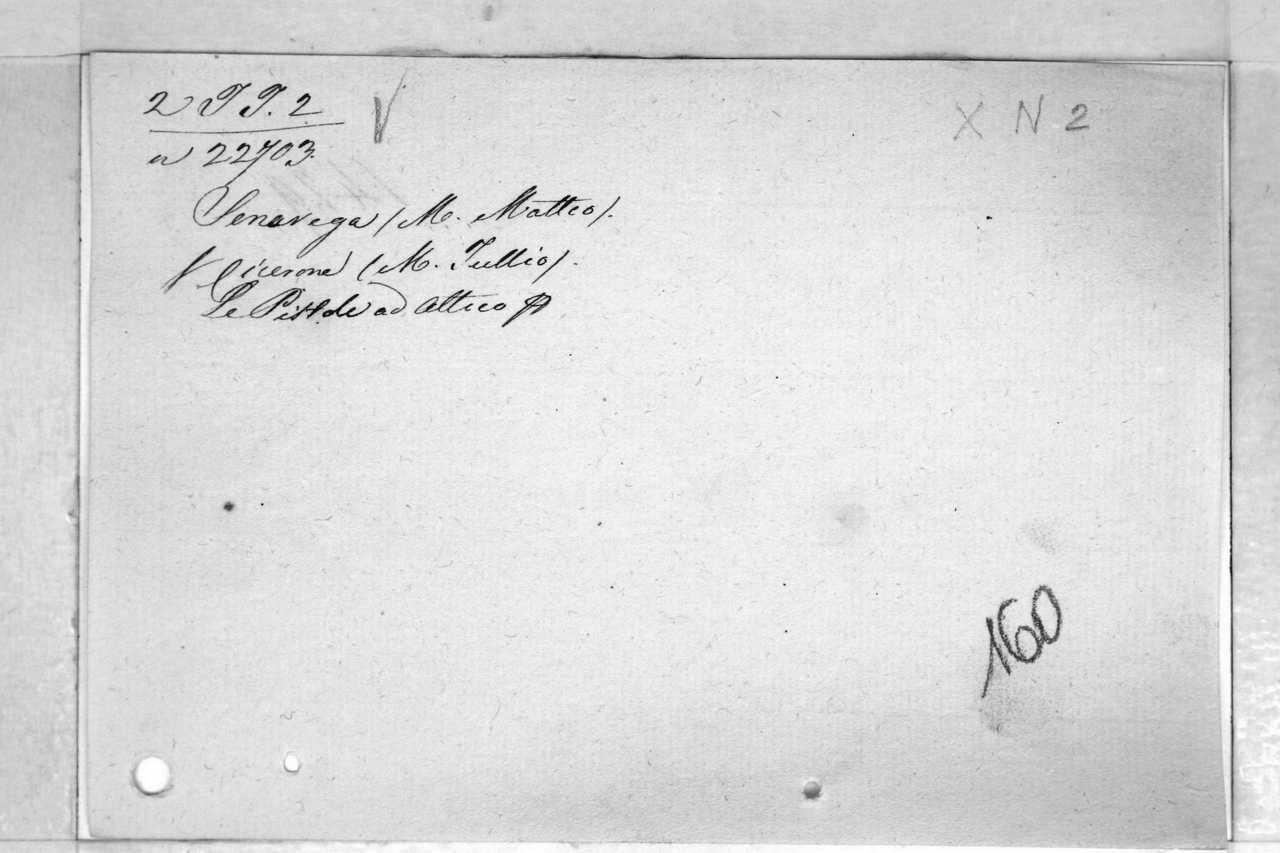 2 T T. 2
X N 2
n 22703.
Senarega (M. Matteo).
Cicerone (M. Tullio).
Le Pistole ad Attico
160